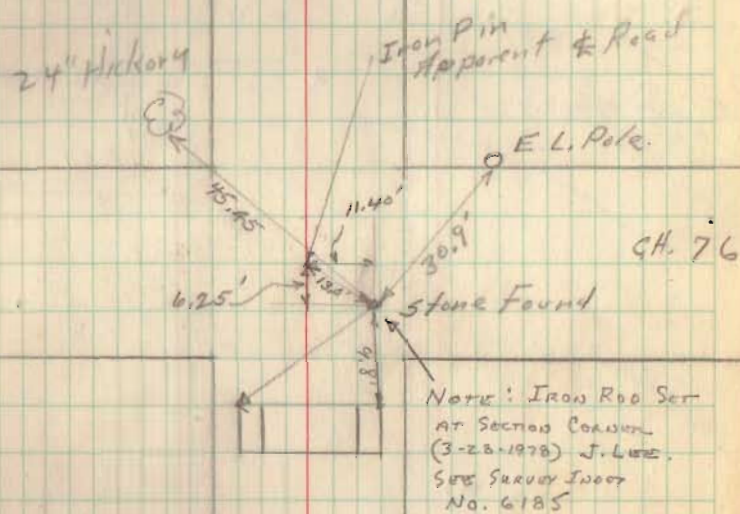 24" Hickory
Iron Pin
Apparent ℄ Road
E L. Pole.
45.45
11.40'
30.9'
CH. 76
6.25'
Stone Found
9.8'
NOTE: IRON ROD SET
AT SECTION CORNER
(3-28-1978) J. LEE.
SEE SURVEY INDEX
NO. 6185